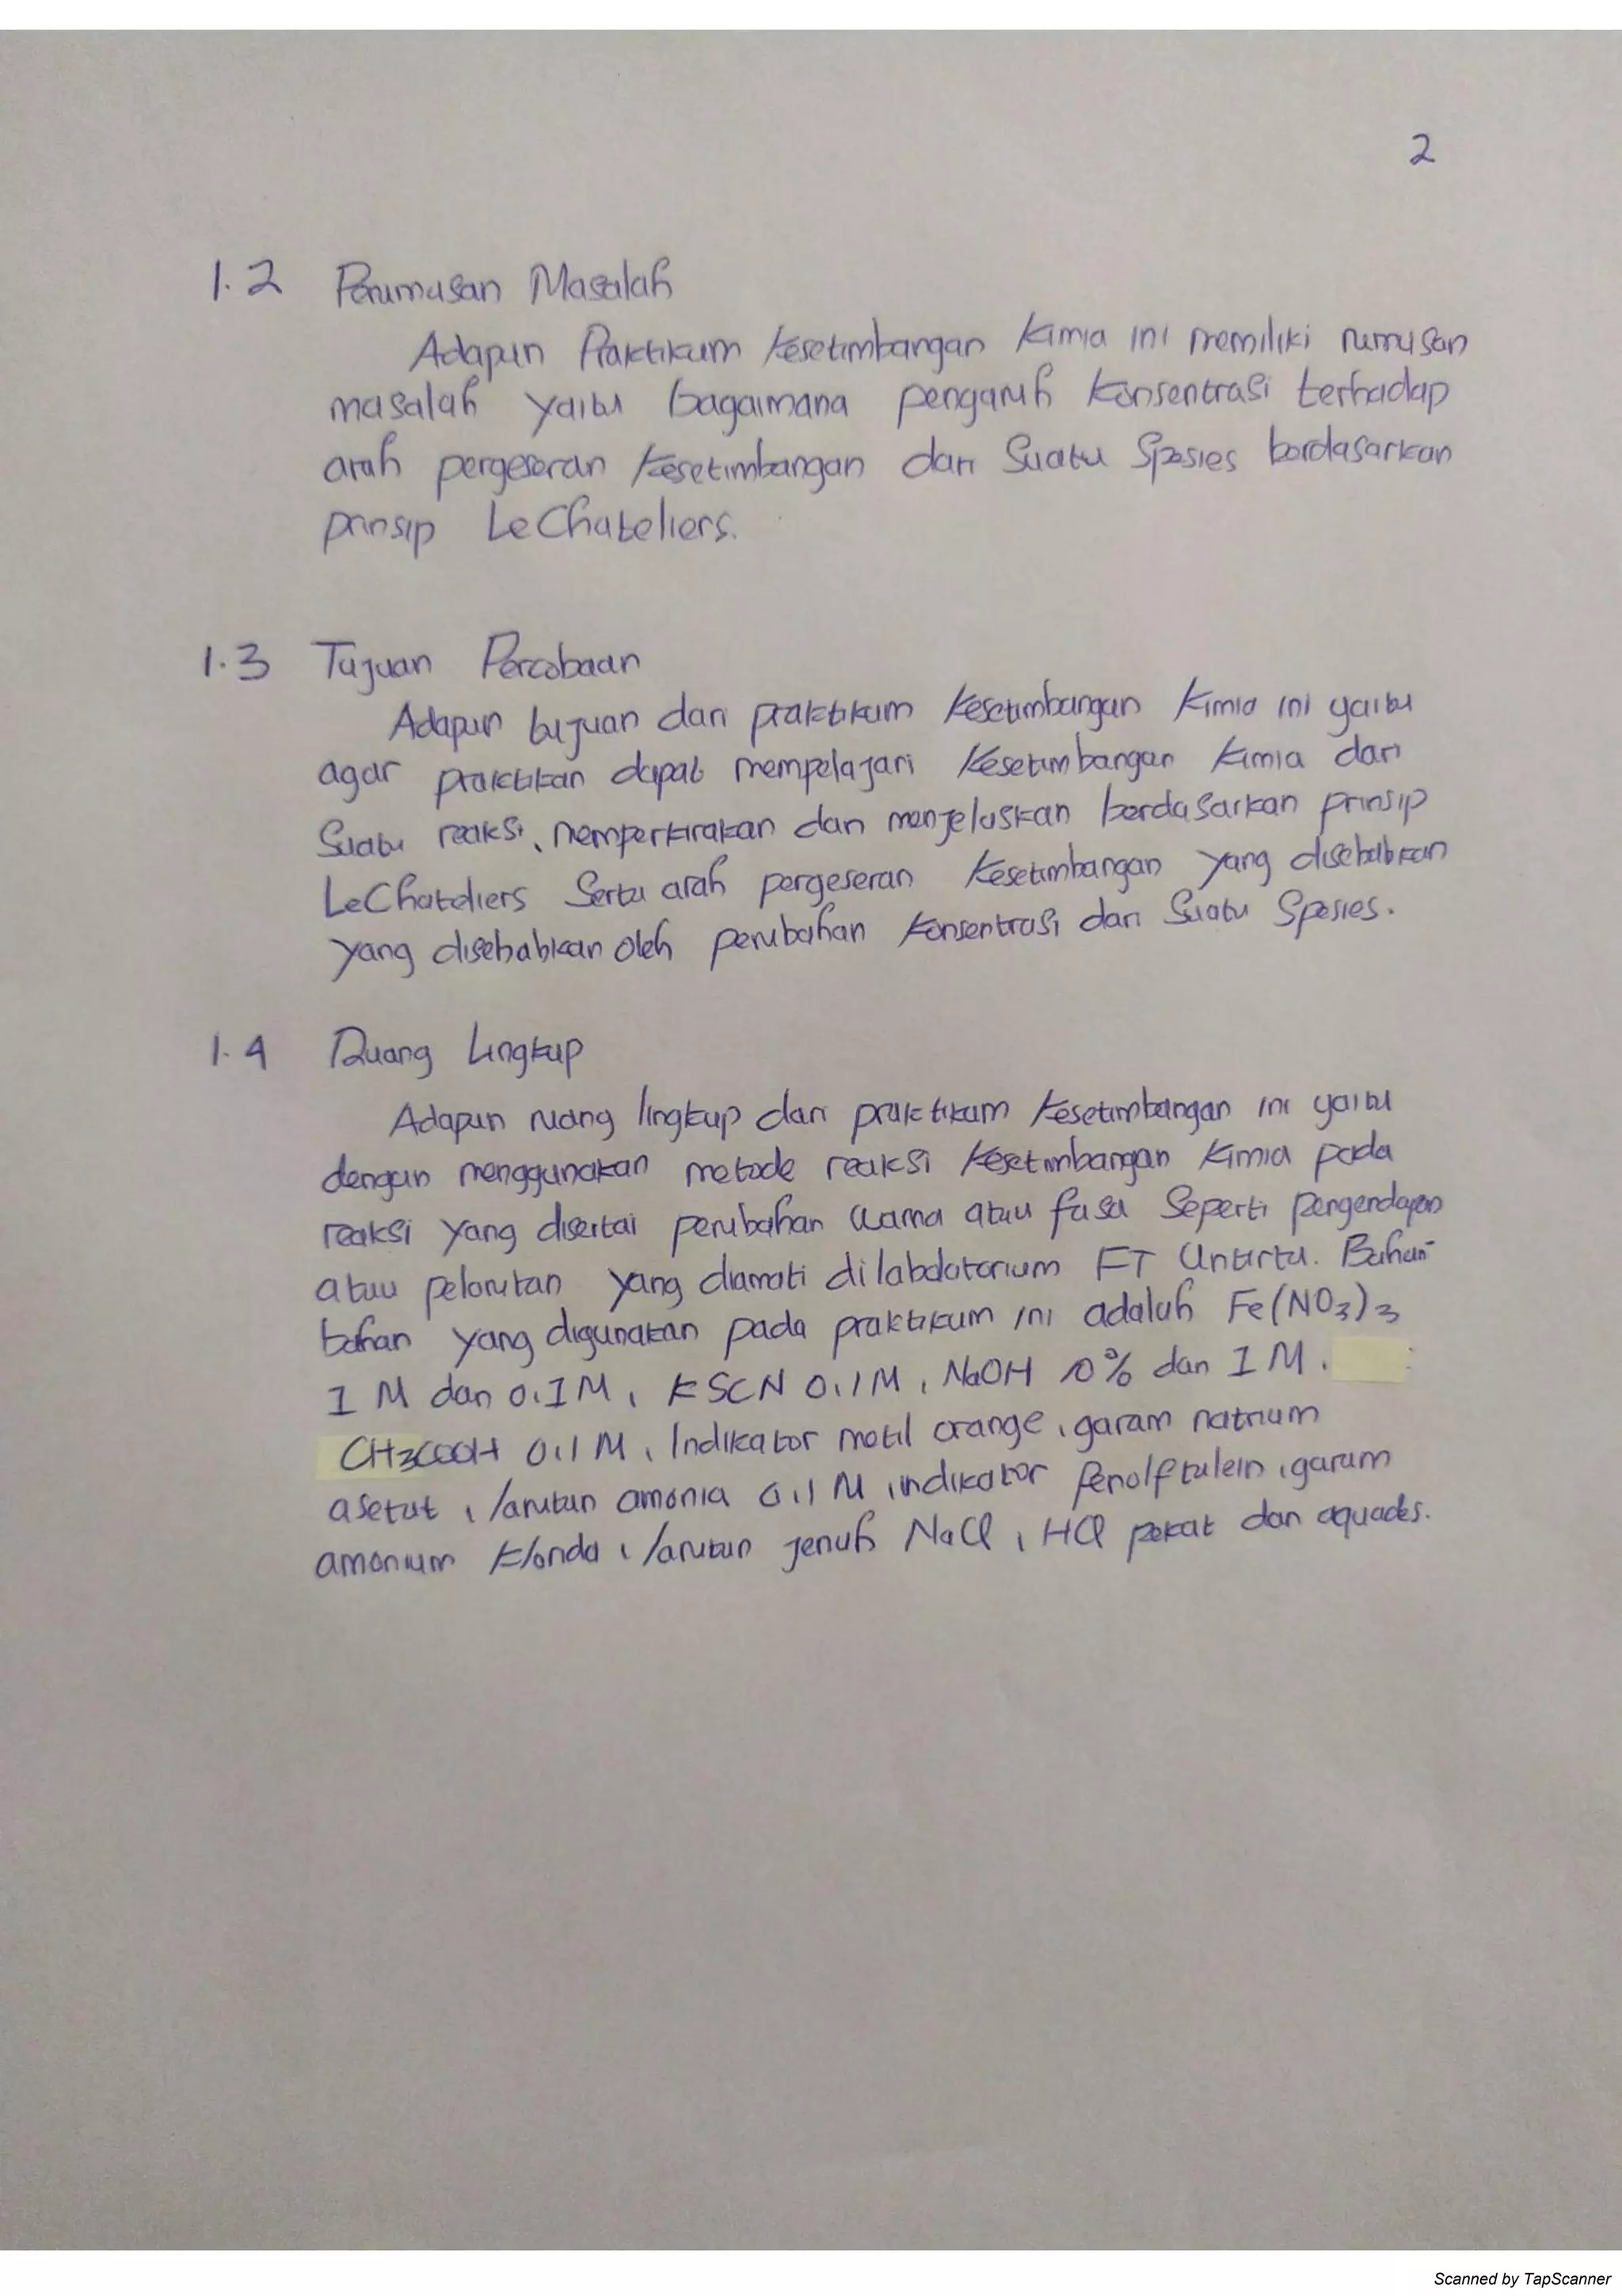 2
1.2 Perumusan Masalah
Adapun Praktikum Kesetimbangan Kimia ini memiliki rumusan
masalah yaitu bagaimana pengaruh Konsentrasi terhadap
arah pergeseran Kesetimbangan dari Suatu Spesies berdasarkan
prinsip LeChateliers.
1.3 Tujuan Percobaan
Adapun tujuan dari praktikum Kesetimbangan Kimia ini yaitu
agar praktikan dapat mempelajari Kesetimbangan Kimia dari
Suatu reaksi, memperkirakan dan menjelaskan berdasarkan prinsip
LeChateliers Serta arah pergeseran Kesetimbangan yang disebabkan
yang disebabkan oleh perubahan Konsentrasi dari Suatu Spesies.
1.4 Ruang Lingkup
Adapun ruang lingkup dari praktikum Kesetimbangan ini yaitu
dengan menggunakan metode reaksi Kesetimbangan Kimia pada
reaksi yang disertai perubahan warna atau fasa Seperti pengendapan
atau pelarutan yang diamati di labolatorium FT Untirta. Bahan-
bahan yang digunakan pada praktikum ini adalah Fe(NO3)3
1 M dan 0,1 M, KSCN 0,1 M, NaOH 10% dan 1 M,
CH3COOH 0,1 M, Indikator metil orange, garam natrium
asetat, larutan amonia 0,1 M, indikator fenolftalein, garam
amonium klorida, larutan jenuh NaCl, HCl pekat dan aquades.
Scanned by TapScanner